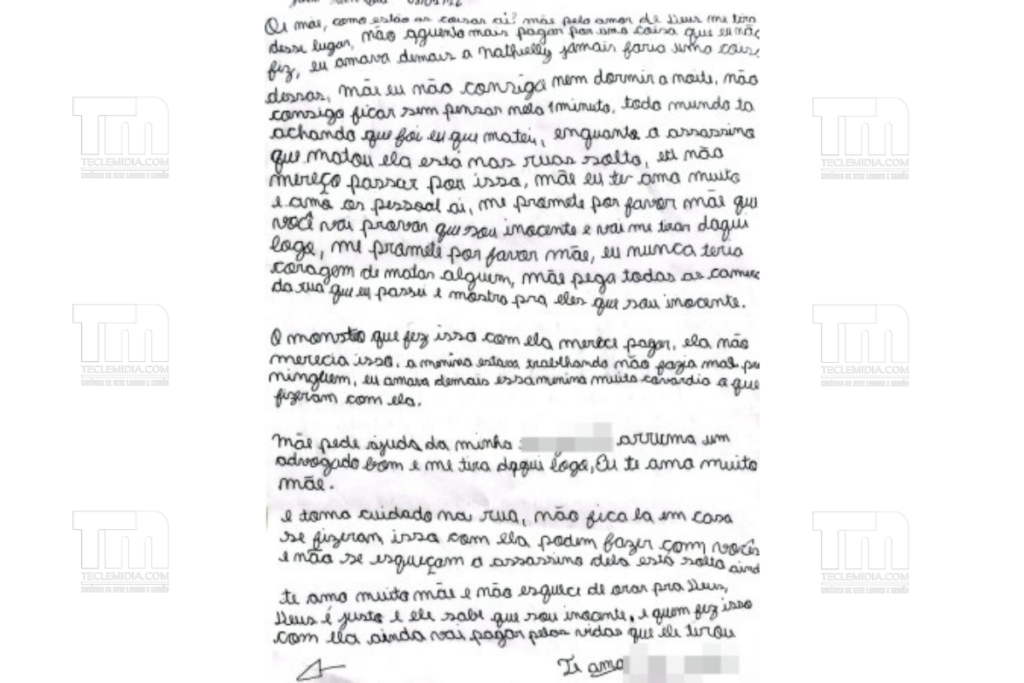 Oi mãe, como estão as coisas ai? mãe pelo amor de Deus me tira
desse lugar, não aguento mais pagar por uma coisa que eu não
fiz, eu amava demais a Nathielly jamais faria uma cois
dessas, mãe eu não consigo nem dormir a noite, não
consigo ficar sem pensar nela 1 minuto, todo mundo ta
achando que foi eu que matei, enquanto o assassino
que matou ela está nas ruas solto, eu não
mereço passar por isso, mãe eu te amo muito
e amo os pessoal ai, me promete por favor mãe que
você vai provar que sou inocente e vai me tirar daqui
logo, me promete por favor mãe, eu nunca teria
coragem de matar alguem, mãe pega todas as camera
da rua que eu passei e mostra pra eles que sou inocente.
O monstro que fez isso com ela merece pagar, ela não
merecia isso, a menina estava trablhando não fazia mal pra
ninguem, eu amava demais essa menina muita covardia o que
fizeram com ela.
Mãe pede ajuda da minha arruma um
advogado bom e me tira daqui logo, Eu te amo muito
mãe.
e toma cuidado na rua, não fica la em casa
se fizeram isso com ela podem fazer com vocês
e não se esqueçam o assassino dela está solto aind
te amo muito mãe e não esquece de orar pra Deus,
Deus é justo e ele sabe que sou inocente, e quem fez isso
com ela ainda vai pagar pelas vidas que ele tirou
Te amo
TM
TECLEMIDIA.COM
TM
TECLEMIDIA.COM
TM
TECLEMIDIA.COM
TM
TECLEMIDIA.COM
TM
TECLEMIDIA.COM
TM
TECLEMIDIA.COM